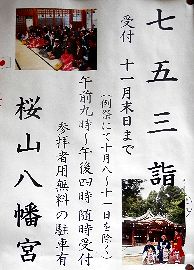 七五三詣
受付 十一月末日まで
(例祭にて十月八~十一日を除く)
午前九時~午後四時 随時受付
参拝者用無料の駐車有
桜山八幡宮